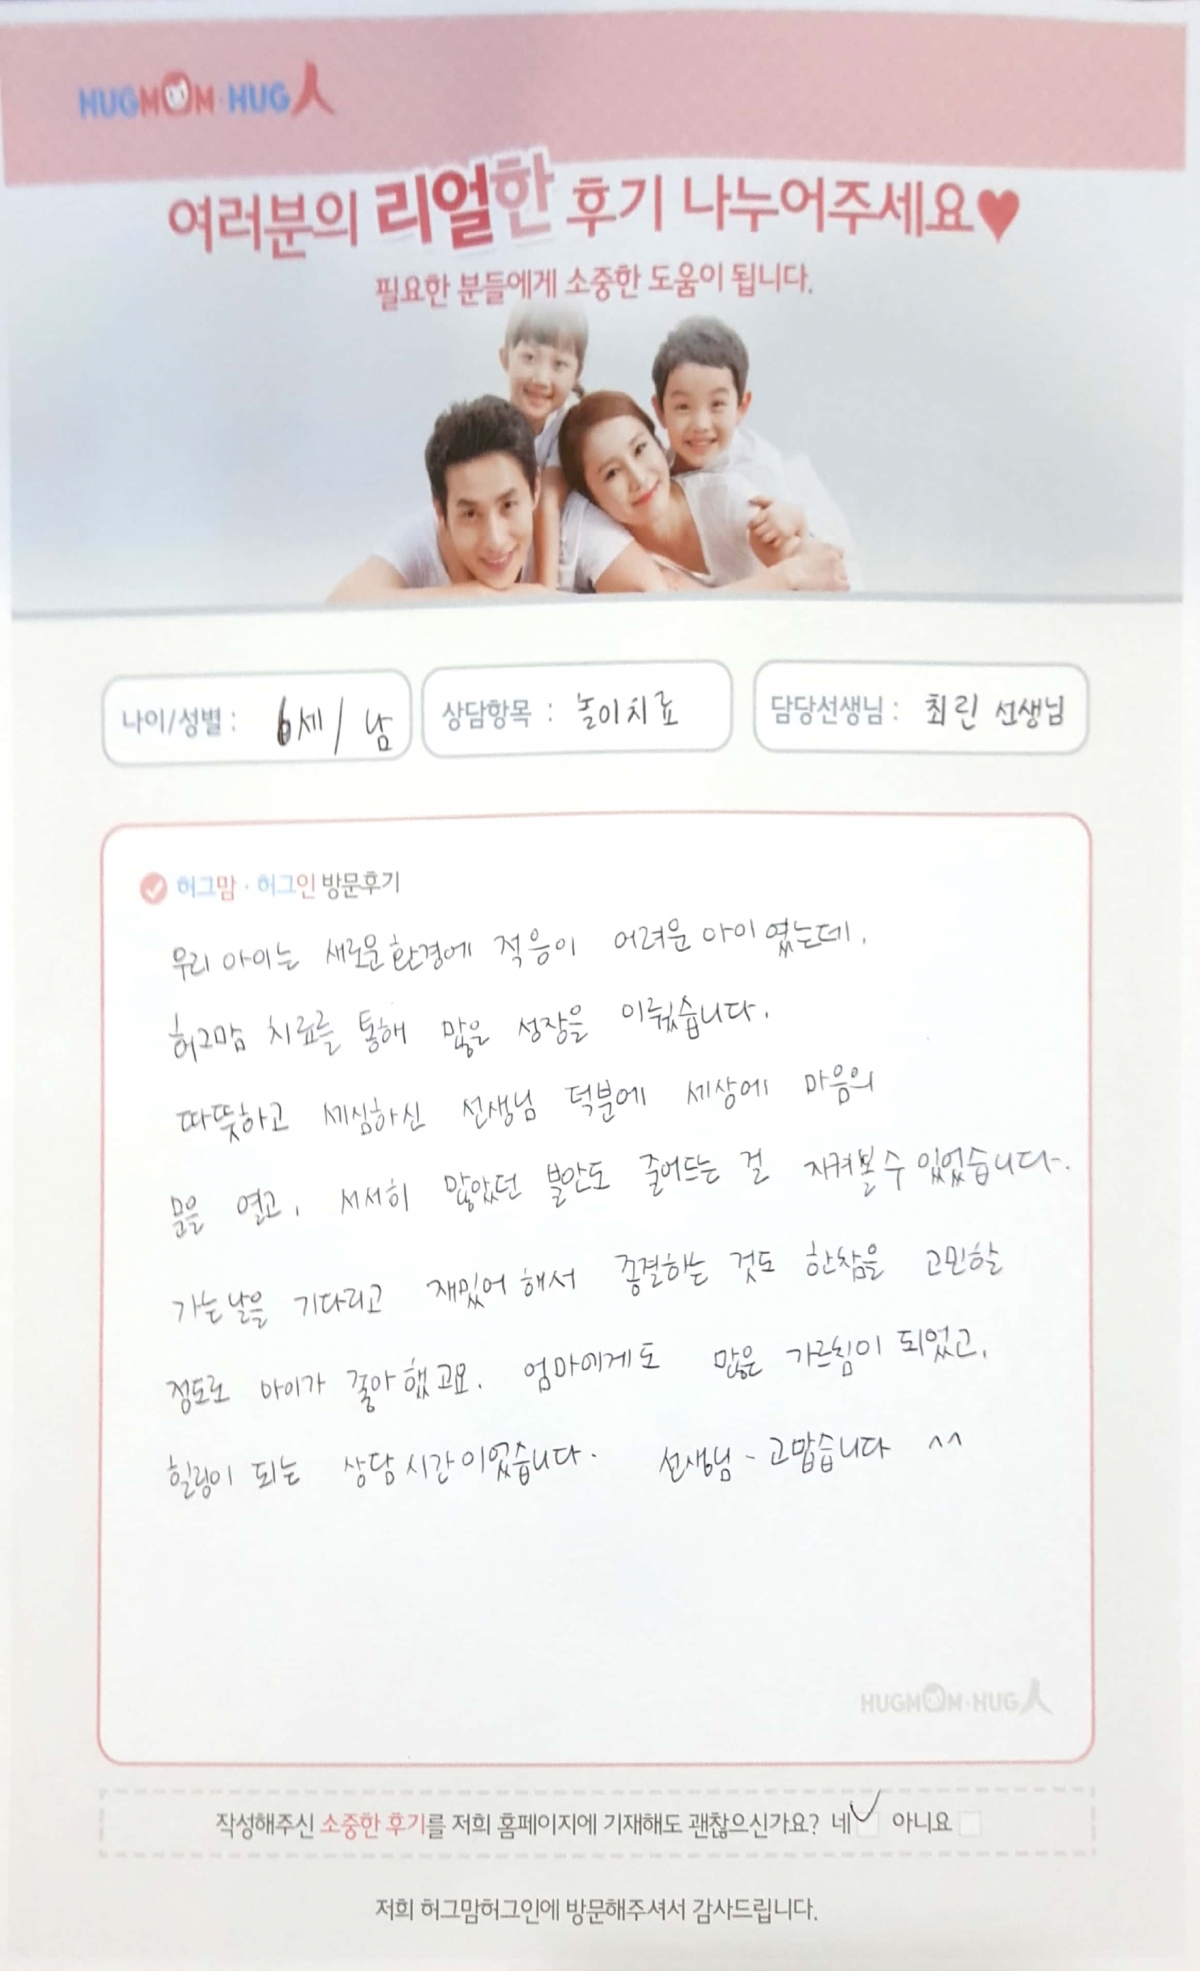 HUGMOM·HUG人
여러분의 리얼한 후기 나누어주세요♥
필요한 분들에게 소중한 도움이 됩니다.
나이/성별 : 6세 / 남
상담항목 : 놀이치료
담당선생님 : 최린 선생님
허그맘·허그인 방문후기
우리 아이는 새로운 환경에 적응이 어려운 아이였는데,
허그맘 치료를 통해 많은 성장을 이뤘습니다.
따뜻하고 세심하신 선생님 덕분에 세상에 마음의
문을 열고, 서서히 많았던 불안도 줄어드는 걸 지켜볼 수 있었습니다.
가는 날을 기다리고 재밌어 해서 종결하는 것도 한참을 고민할
정도로 아이가 좋아했고요. 엄마에게도 많은 가르침이 되었고,
힐링이 되는 상담 시간이었습니다. 선생님~ 고맙습니다 ^^
HUGMOM·HUG人
작성해주신 소중한 후기를 저희 홈페이지에 기재해도 괜찮으신가요? 네 ✓ 아니요
저희 허그맘허그인에 방문해주셔서 감사드립니다.